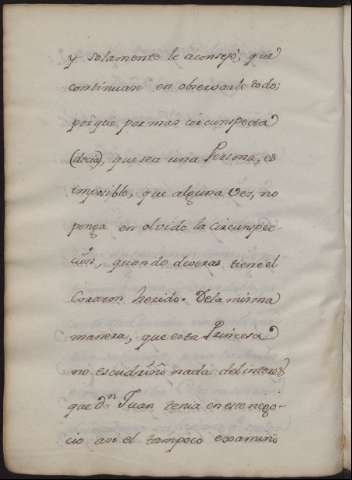 y solamente le aconsejò, que
continuàn en observarle todo;
porque por mas circunspecta
(decia), que sea una Persona, es
imposible, que alguna ves, no
ponga en olvido la circunspec-
cion, quando deveras tiene el
Corazon herido. Dela misma
manera, que esta Princesa
no escudriñò nada del interes,
que Dn. Juan tenia en este nego-
cio asi el tampoco examinò